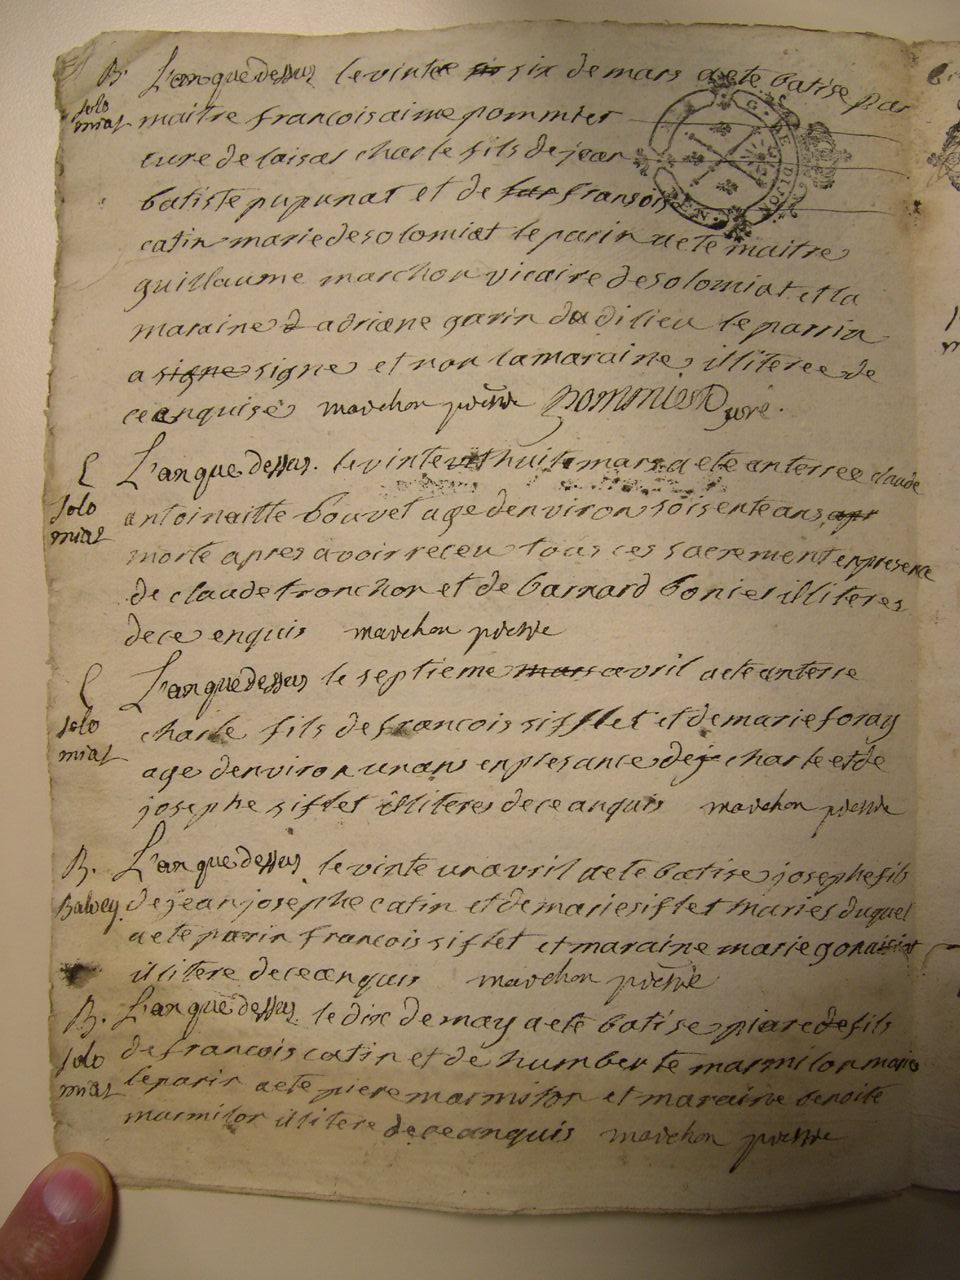 B. L'an que dessus le vinte six de mars a ete batise par
Solo
miat
maitre francois aime pommier
cure de laisar charle fils de jean
batiste pupunat et de fransois
catin marie de solomiat le parin a ete maitre
guillaume marchon vicaire de solomiat et la
maraine adriane garin du dilieu le parrin
a signe signe et non la maraine illiteree de
ce anquise marchon pretre pommier cure.
L'an que dessus. le vinte huit mars a ete anterree claude
Solo
miat
antoinaitte bouvet age d'environ soisente ans
morte apres avoir receu tous ces sacrement en presence
de claude tronchon et de barnard bonier illiteres
de ce enquis marchon pretre
L'an que dessus le septieme mars avril a ete anterre
Solo
miat
charle fils de francois sifflet et de marie foray
age denviron un ans en presance de charle et de
josephe siflet illiteres de ce anquis marchon pretre
B. L'an que dessus le vinte un avril a ete batise josephe fils
Balvey. de jean josephe catin et de marie siflet maries duquel
a ete parin francois siflet et maraine marie
illitere de ce anquis marchon pretre
B. L'an que dessus. le dix de may a ete batise piare de fils
Solo
miat
de francois catin et de humberte marmilon marie
le parin a ete piere marmilon et maraine benoite
marmilon illitere de ce anquis marchon pretre
G. DE DIJON